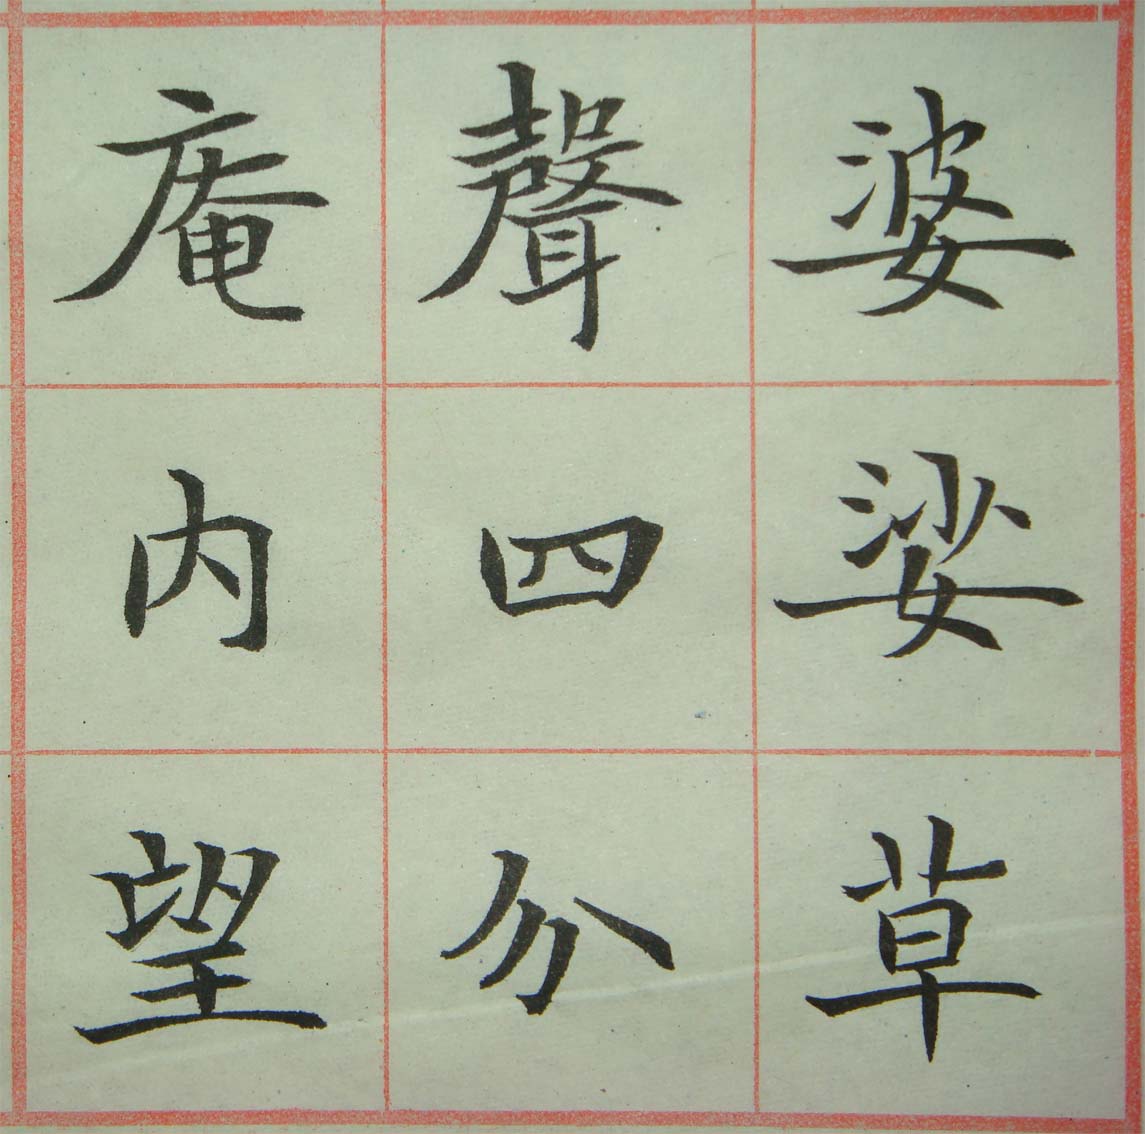 婆娑草
聲四分
庵内望